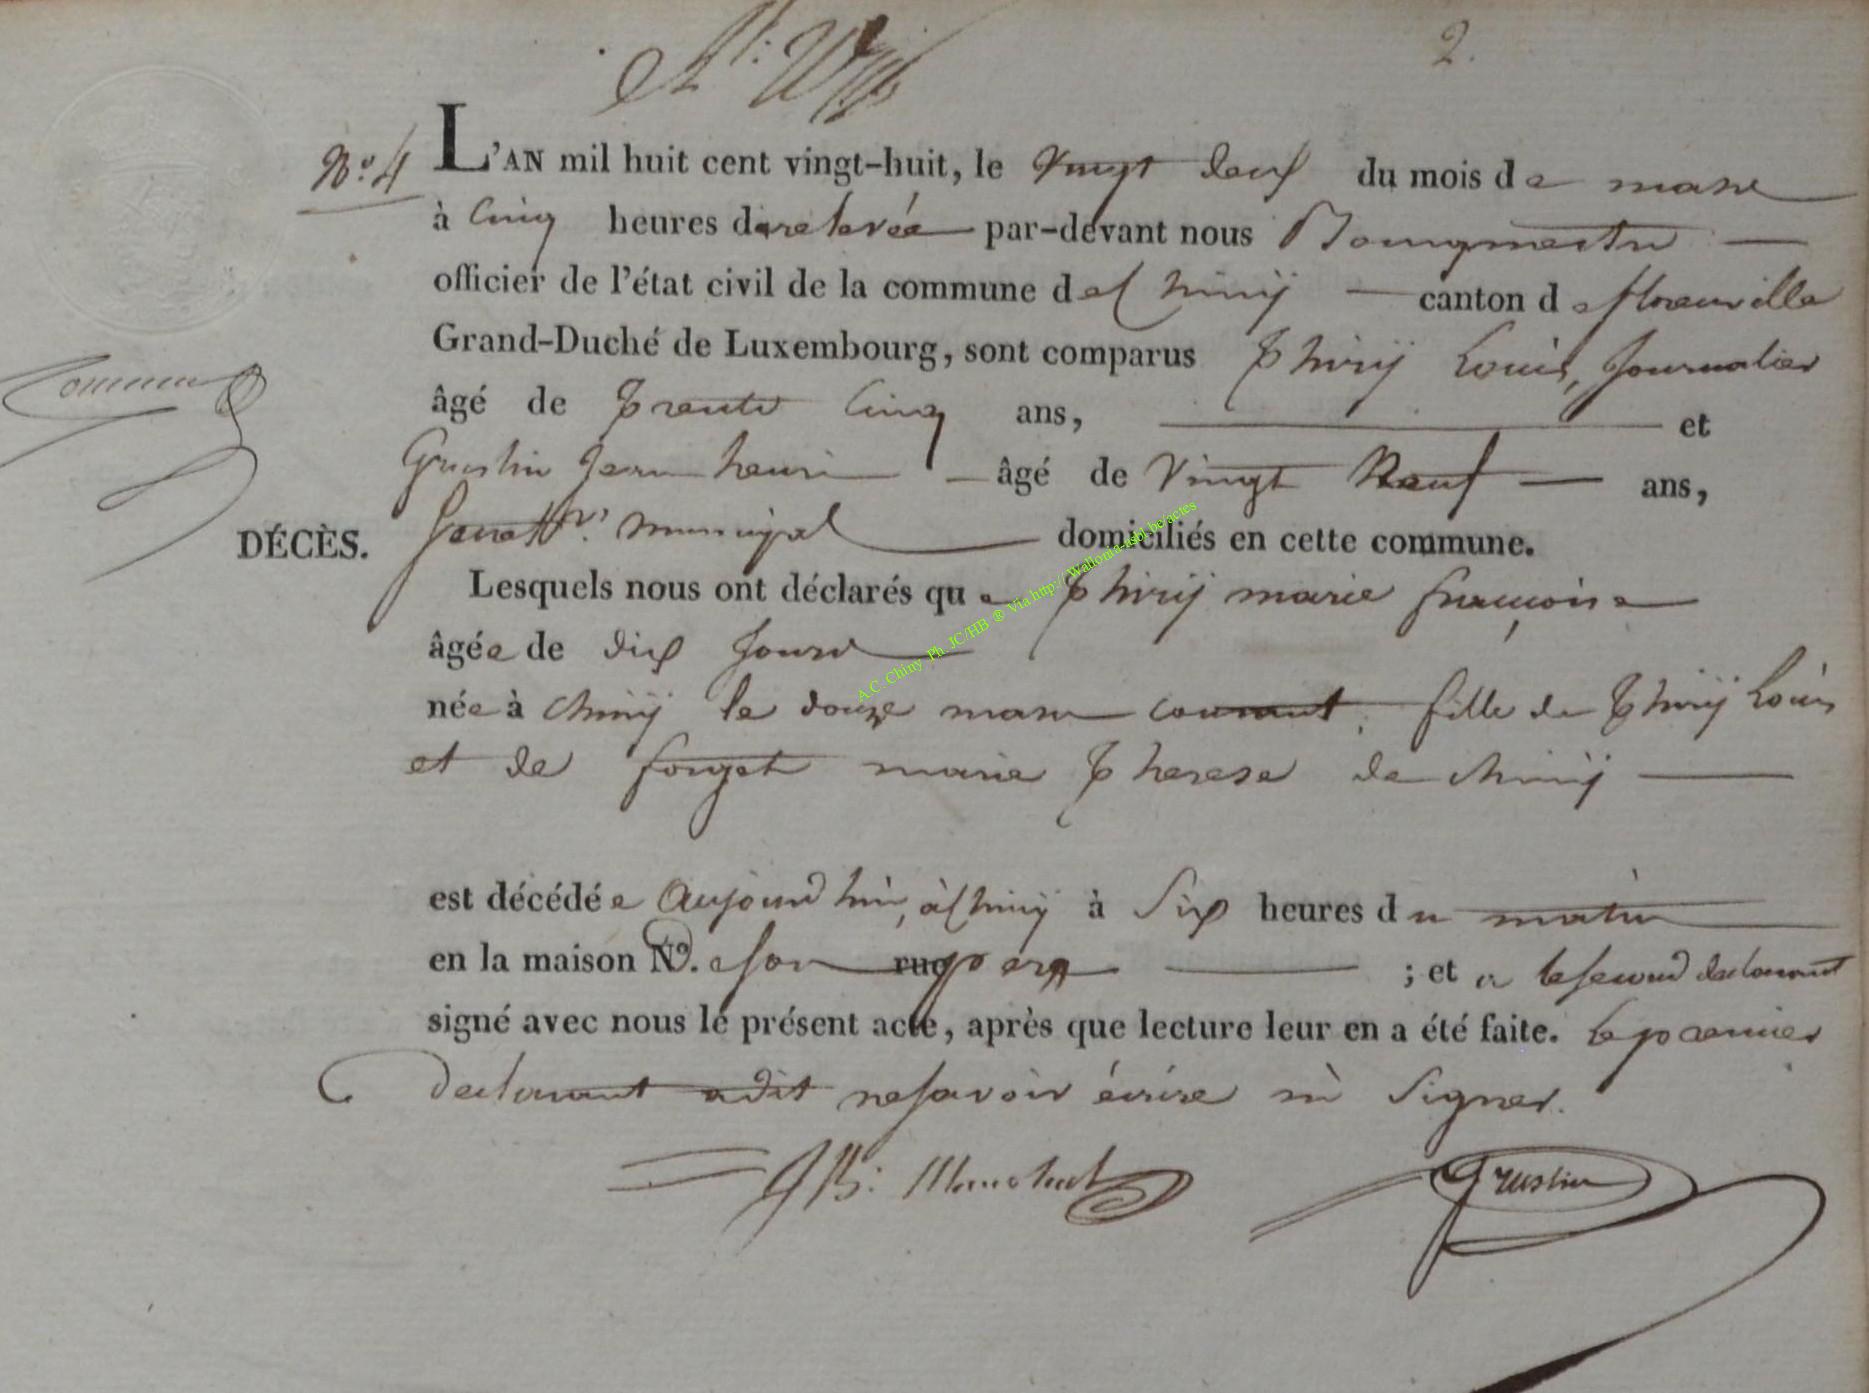 2.
N.o 4
L'AN mil huit cent vingt-huit, le vingt deux du mois de mars
à cinq heures de relevée par-devant nous Bourgmestre
officier de l'état civil de la commune de Chinÿ canton de florenville
Grand-Duché de Luxembourg, sont comparus Thirÿ Louis, Journalier
âgé de Trente Cinq ans, et
Gruslin Jean henri âgé de Vingt Neuf ans,
DÉCÈS.
municipal domiciliés en cette commune.
Lesquels nous ont déclarés que Thirÿ marie françoise
âgée de dix Jours
née à chinÿ le douze mars courant, fille de Thirÿ Louis
et de forget marie Therese de chinÿ
est décédée aujourd'hui, à Chinÿ à Six heures du matin
en la maison No. de son rue pere ; et a le second declarant
signé avec nous le présent acte, après que lecture leur en a été faite. Le premier
declarant a dit ne savoir écrire ni Signer.
Gruslin
A.C. Chiny Ph. JC/HB ® Via http://Wallonia-asbl.be/actes